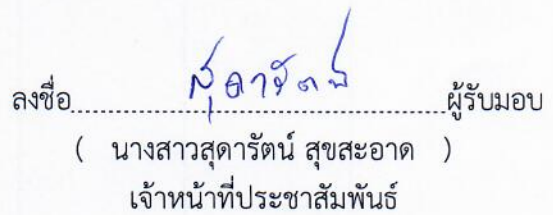 ลงชื่อ สุดารัตน์ ผู้รับมอบ
( นางสาวสุดารัตน์ สุขสะอาด )
เจ้าหน้าที่ประชาสัมพันธ์